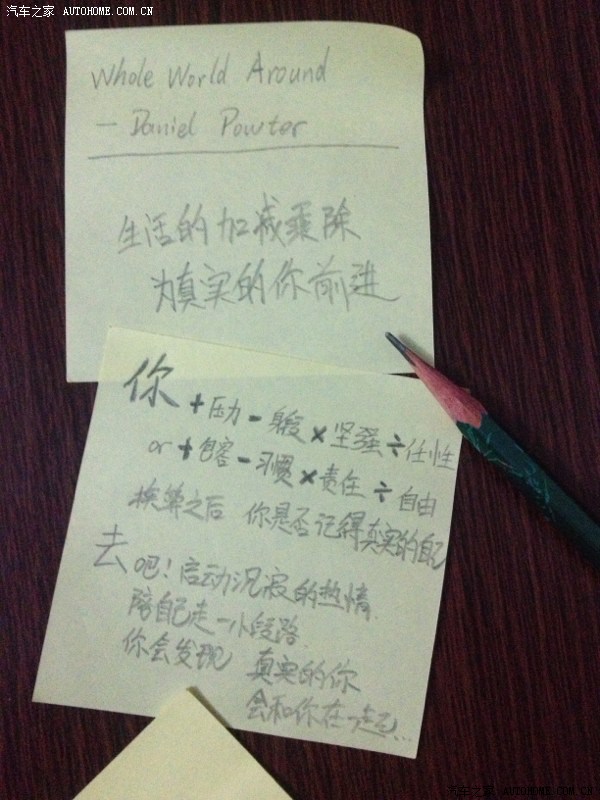 汽车之家 AUTOHOME.COM.CN
Whole World Around
— Daniel Powter
生活的加减乘除
为真实的你前进
你+压力-身段×坚强÷任性
or +包容-习惯×责任÷自由
换算之后 你是否记得真实的自己
去吧!启动沉寂的热情
陪自己走一小段路
你会发现 真实的你
会和你在一起...
汽车之家 AUTOHOME.COM.CN